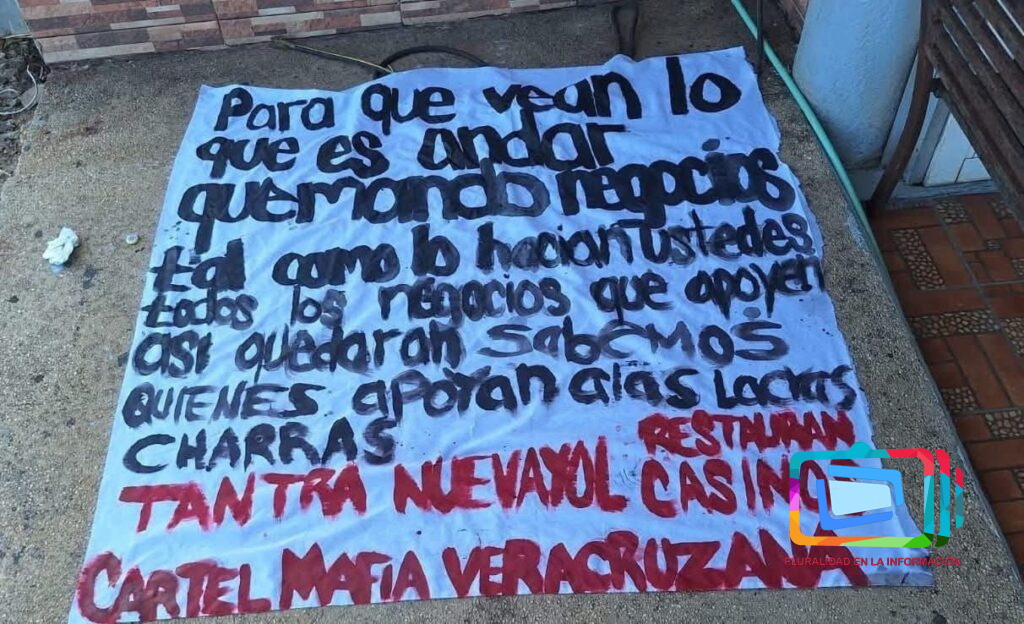 Para que vean lo
que es andar
quemando negocios
tal como lo hacian ustedes
todos los negocios que apoyen
asi quedaran sabemos
QUIENES apoyan alas Lacras
CHARRAS
RESTAURAN
TANTRA NUEVAYOL CASINO
CARTEL MAFIA VERACRUZANA
PLURALIDAD EN LA INFORMACIÓN